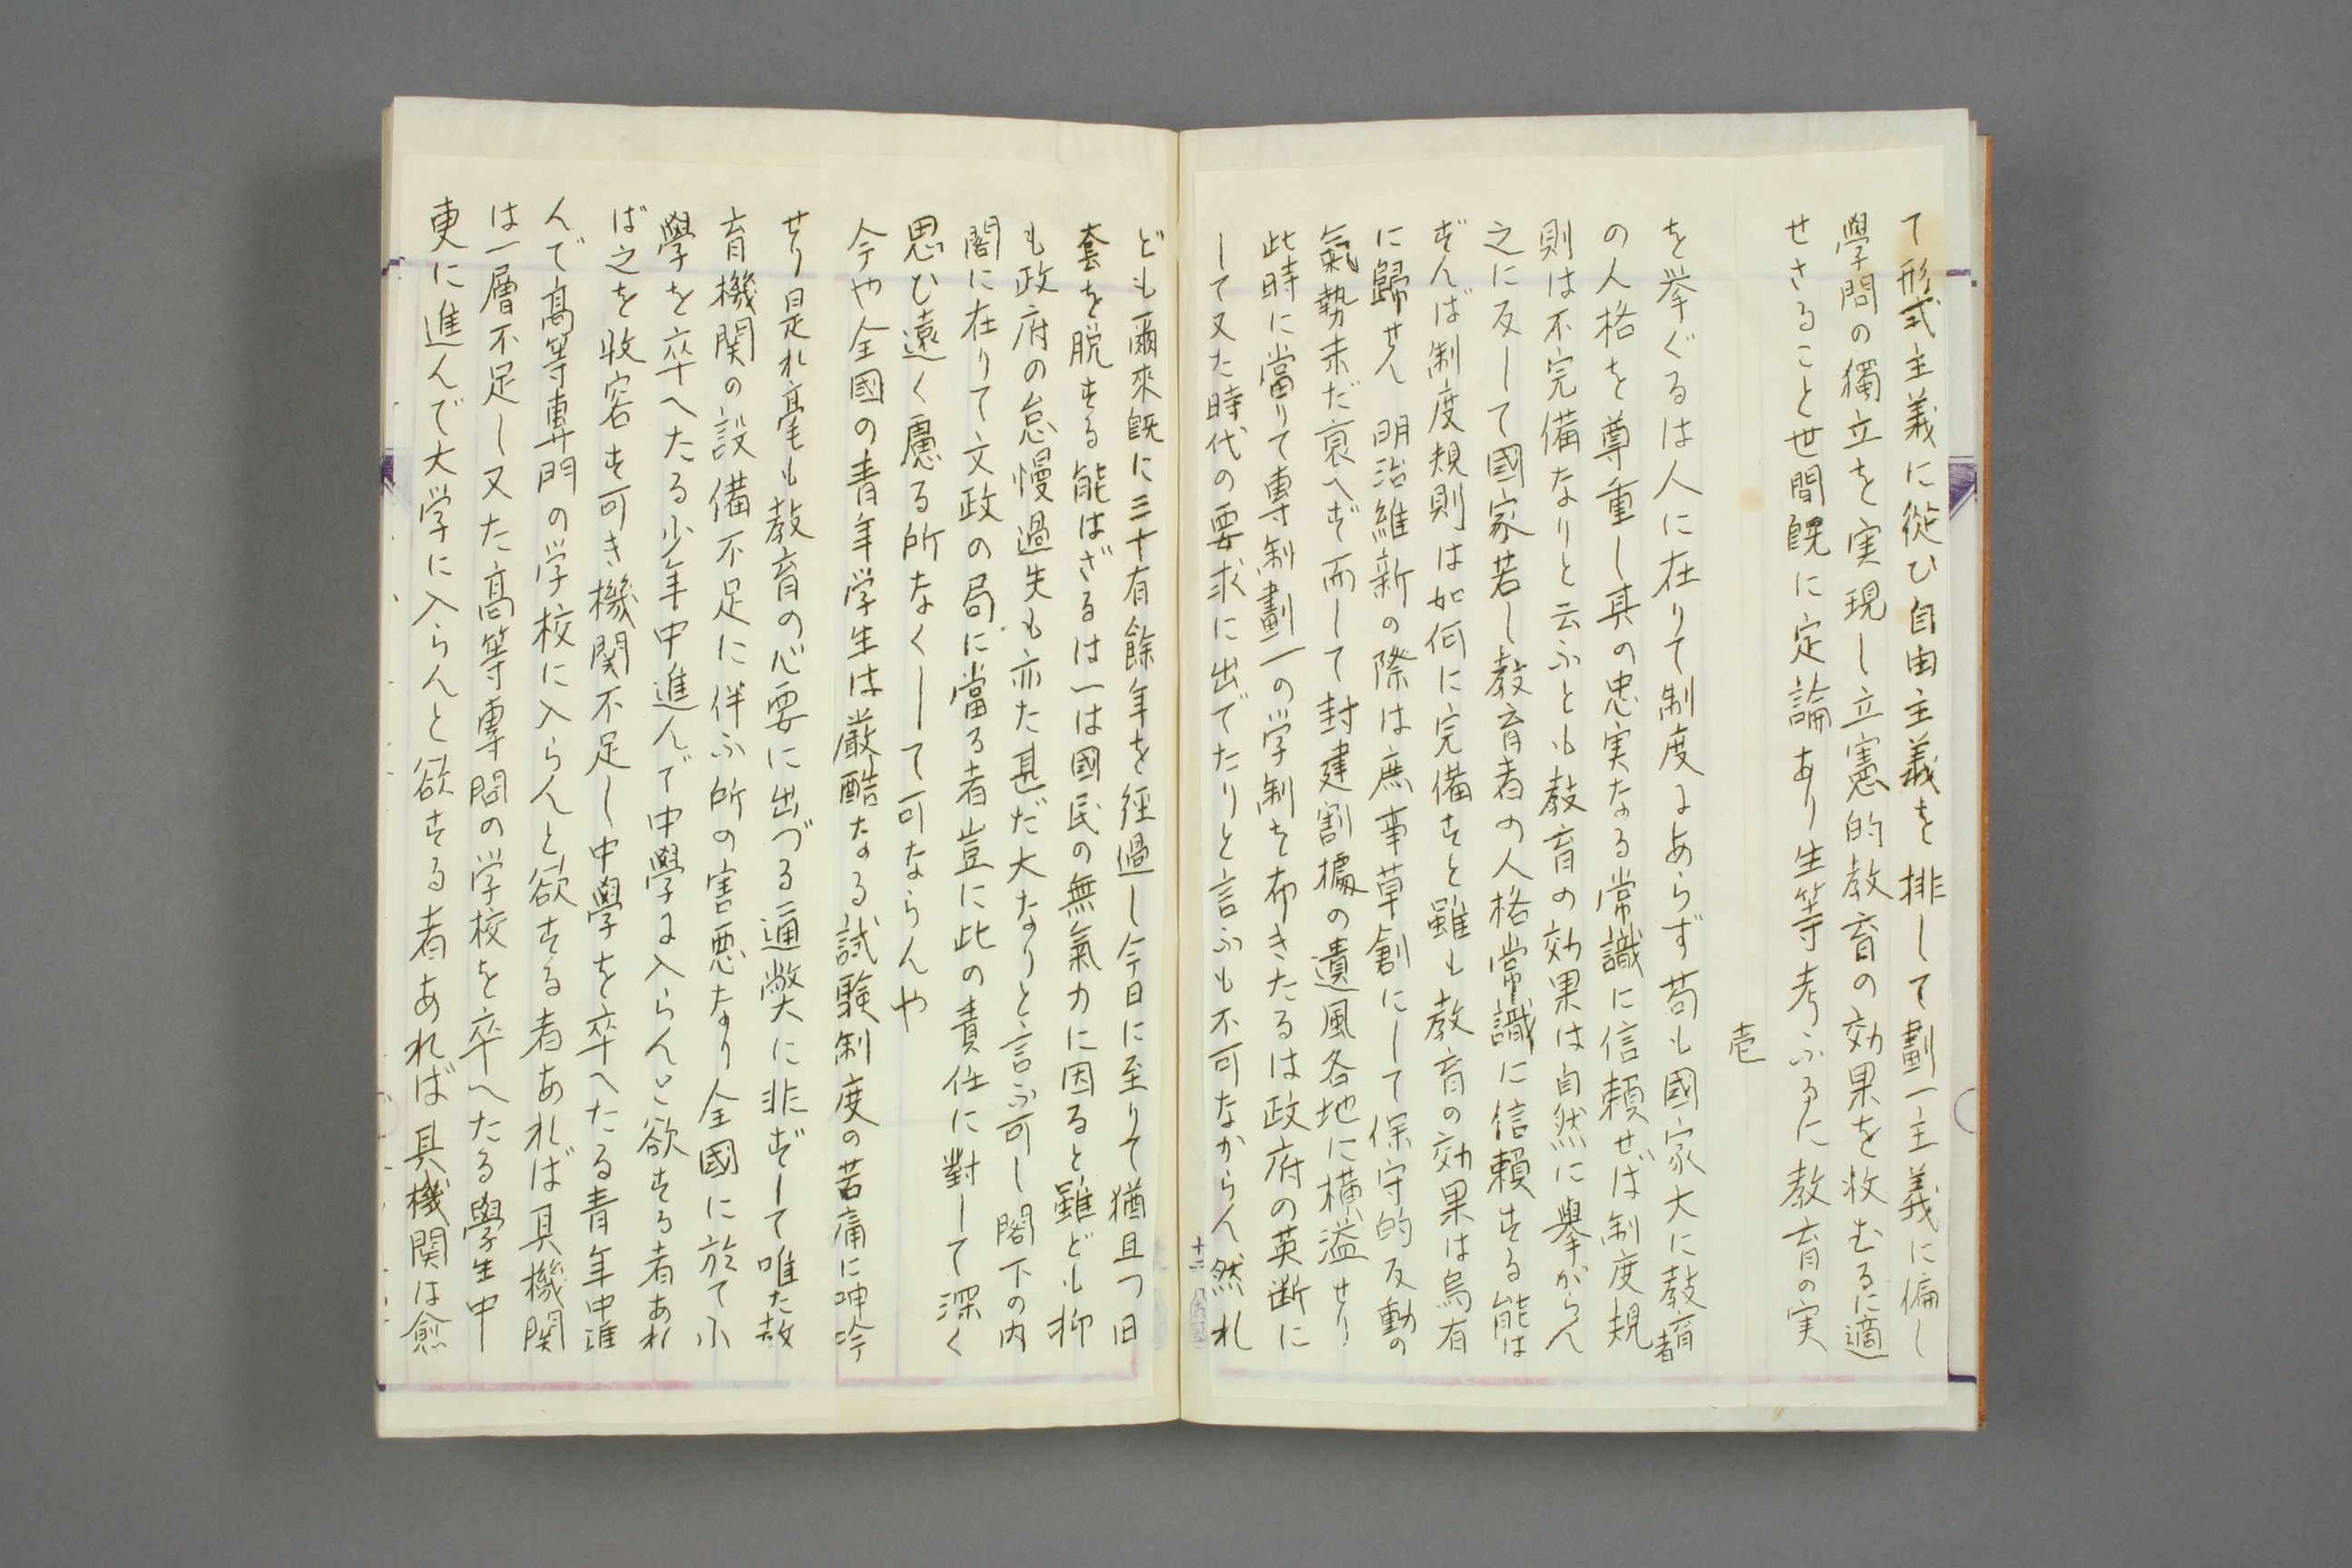 て形式主義に從ひ自由主義を排して劃一主義に偏し
學問の獨立を実現し立憲的教育の効果を收むるに適
せさること世間既に定論あり生等考ふるに教育の実
壱
を挙ぐるは人に在りて制度にあらず苟も國家大に教育者
の人格を尊重し真の忠実なる常識に信頼せば制度規
則は不完備なりと云ふとも教育の効果は自然に擧がらん
之に反して國家若し教育者の人格常識に信頼する能は
ずんば制度規則は如何に完備すと雖も教育の効果は烏有
に歸せん 明治維新の際は庶事草創にして保守的反動の
氣勢未だ衰へず而して封建割據の遺風各地に横溢せり
此時に當りて專制劃一の学制を布きたるは政府の英断に
して又た時代の要求に出でたりと言ふも不可なからん然れ
十二
ども爾來既に三十有餘年を經過し今日に至りて猶且つ旧
套を脱する能はざるは一は國民の無氣力に因ると雖ども抑
も政府の怠慢過失も亦た甚だ大なりと言ふ可し閣下の内
閣に在りて文政の局に當る者豈に此の責任に對して深く
思ひ遠く慮る所なくして可ならんや
今や全國の青年学生は厳酷なる試験制度の苦痛に呻吟
せり是れ毫も教育の心要に出づる通弊に非ずして唯た教
育機関の設備不足に伴ふ所の害悪なり全國に於て小
學を卒へたる少年中進んで中學に入らんと欲する者あれ
ば之を收容す可き機関不足し中學を卒へたる青年中進
んで高等専門の学校に入らんと欲する者あれば其機関
は一層不足し又た高等專問の学校を卒へたる學生中
更に進んで大学に入らんと欲する者あれば其機関は愈